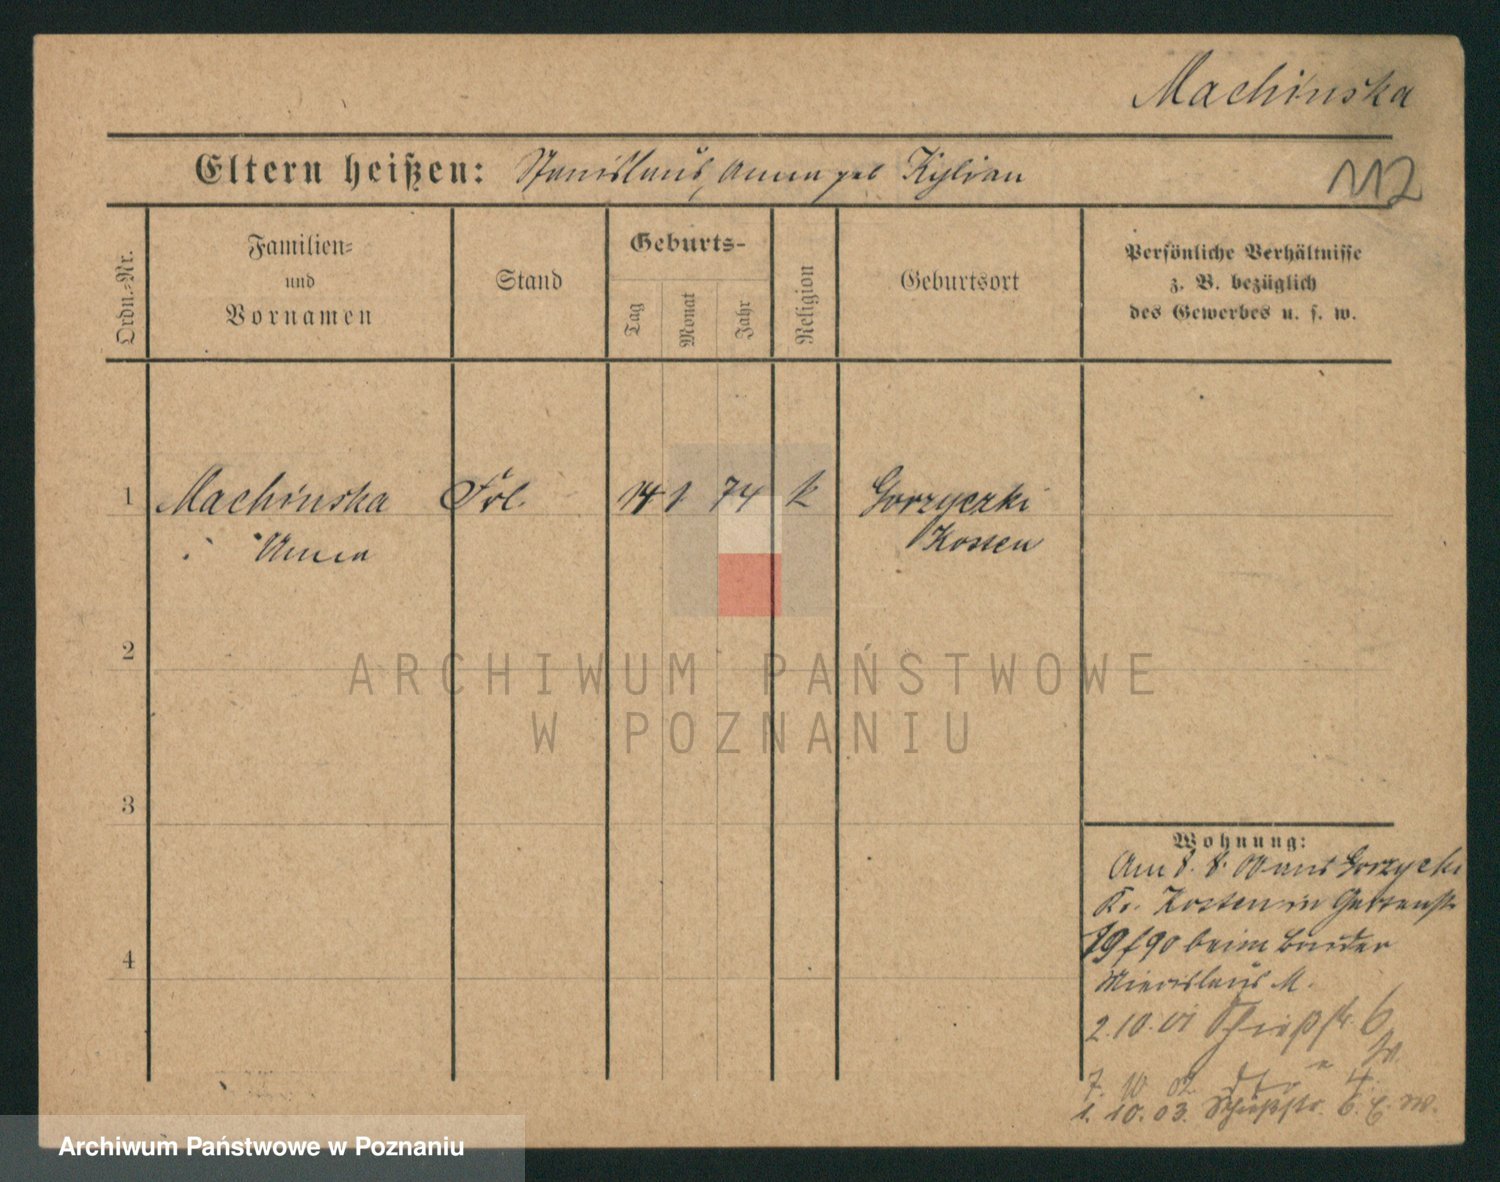 Machinska
Eltern heißen: Stanislaus, Anna geb Kylian
112
Ordn.-Nr.
Familien-
und
Vornamen
Stand
Geburts-
Tag
Monat
Jahr
Religion
Geburtsort
Persönliche Verhältnisse
z. B. bezüglich
des Gewerbes u. s. w.
1 Machinska Frl. 14 1 74 k Gorzyczki
Anna Kosten
2
3
4
Wohnung:
Am 8. 8. 00 aus Gorzycki
Kr. Kosten in Gartenstr
19/90 beim Bruder
Miecislaus M.
2.10.01 Schießstr. 6
7. 10 02 dto 4
1. 10. 03. Schießstr. 6.
ARCHIWUM PAŃSTWOWE
W POZNANIU
Archiwum Państwowe w Poznaniu